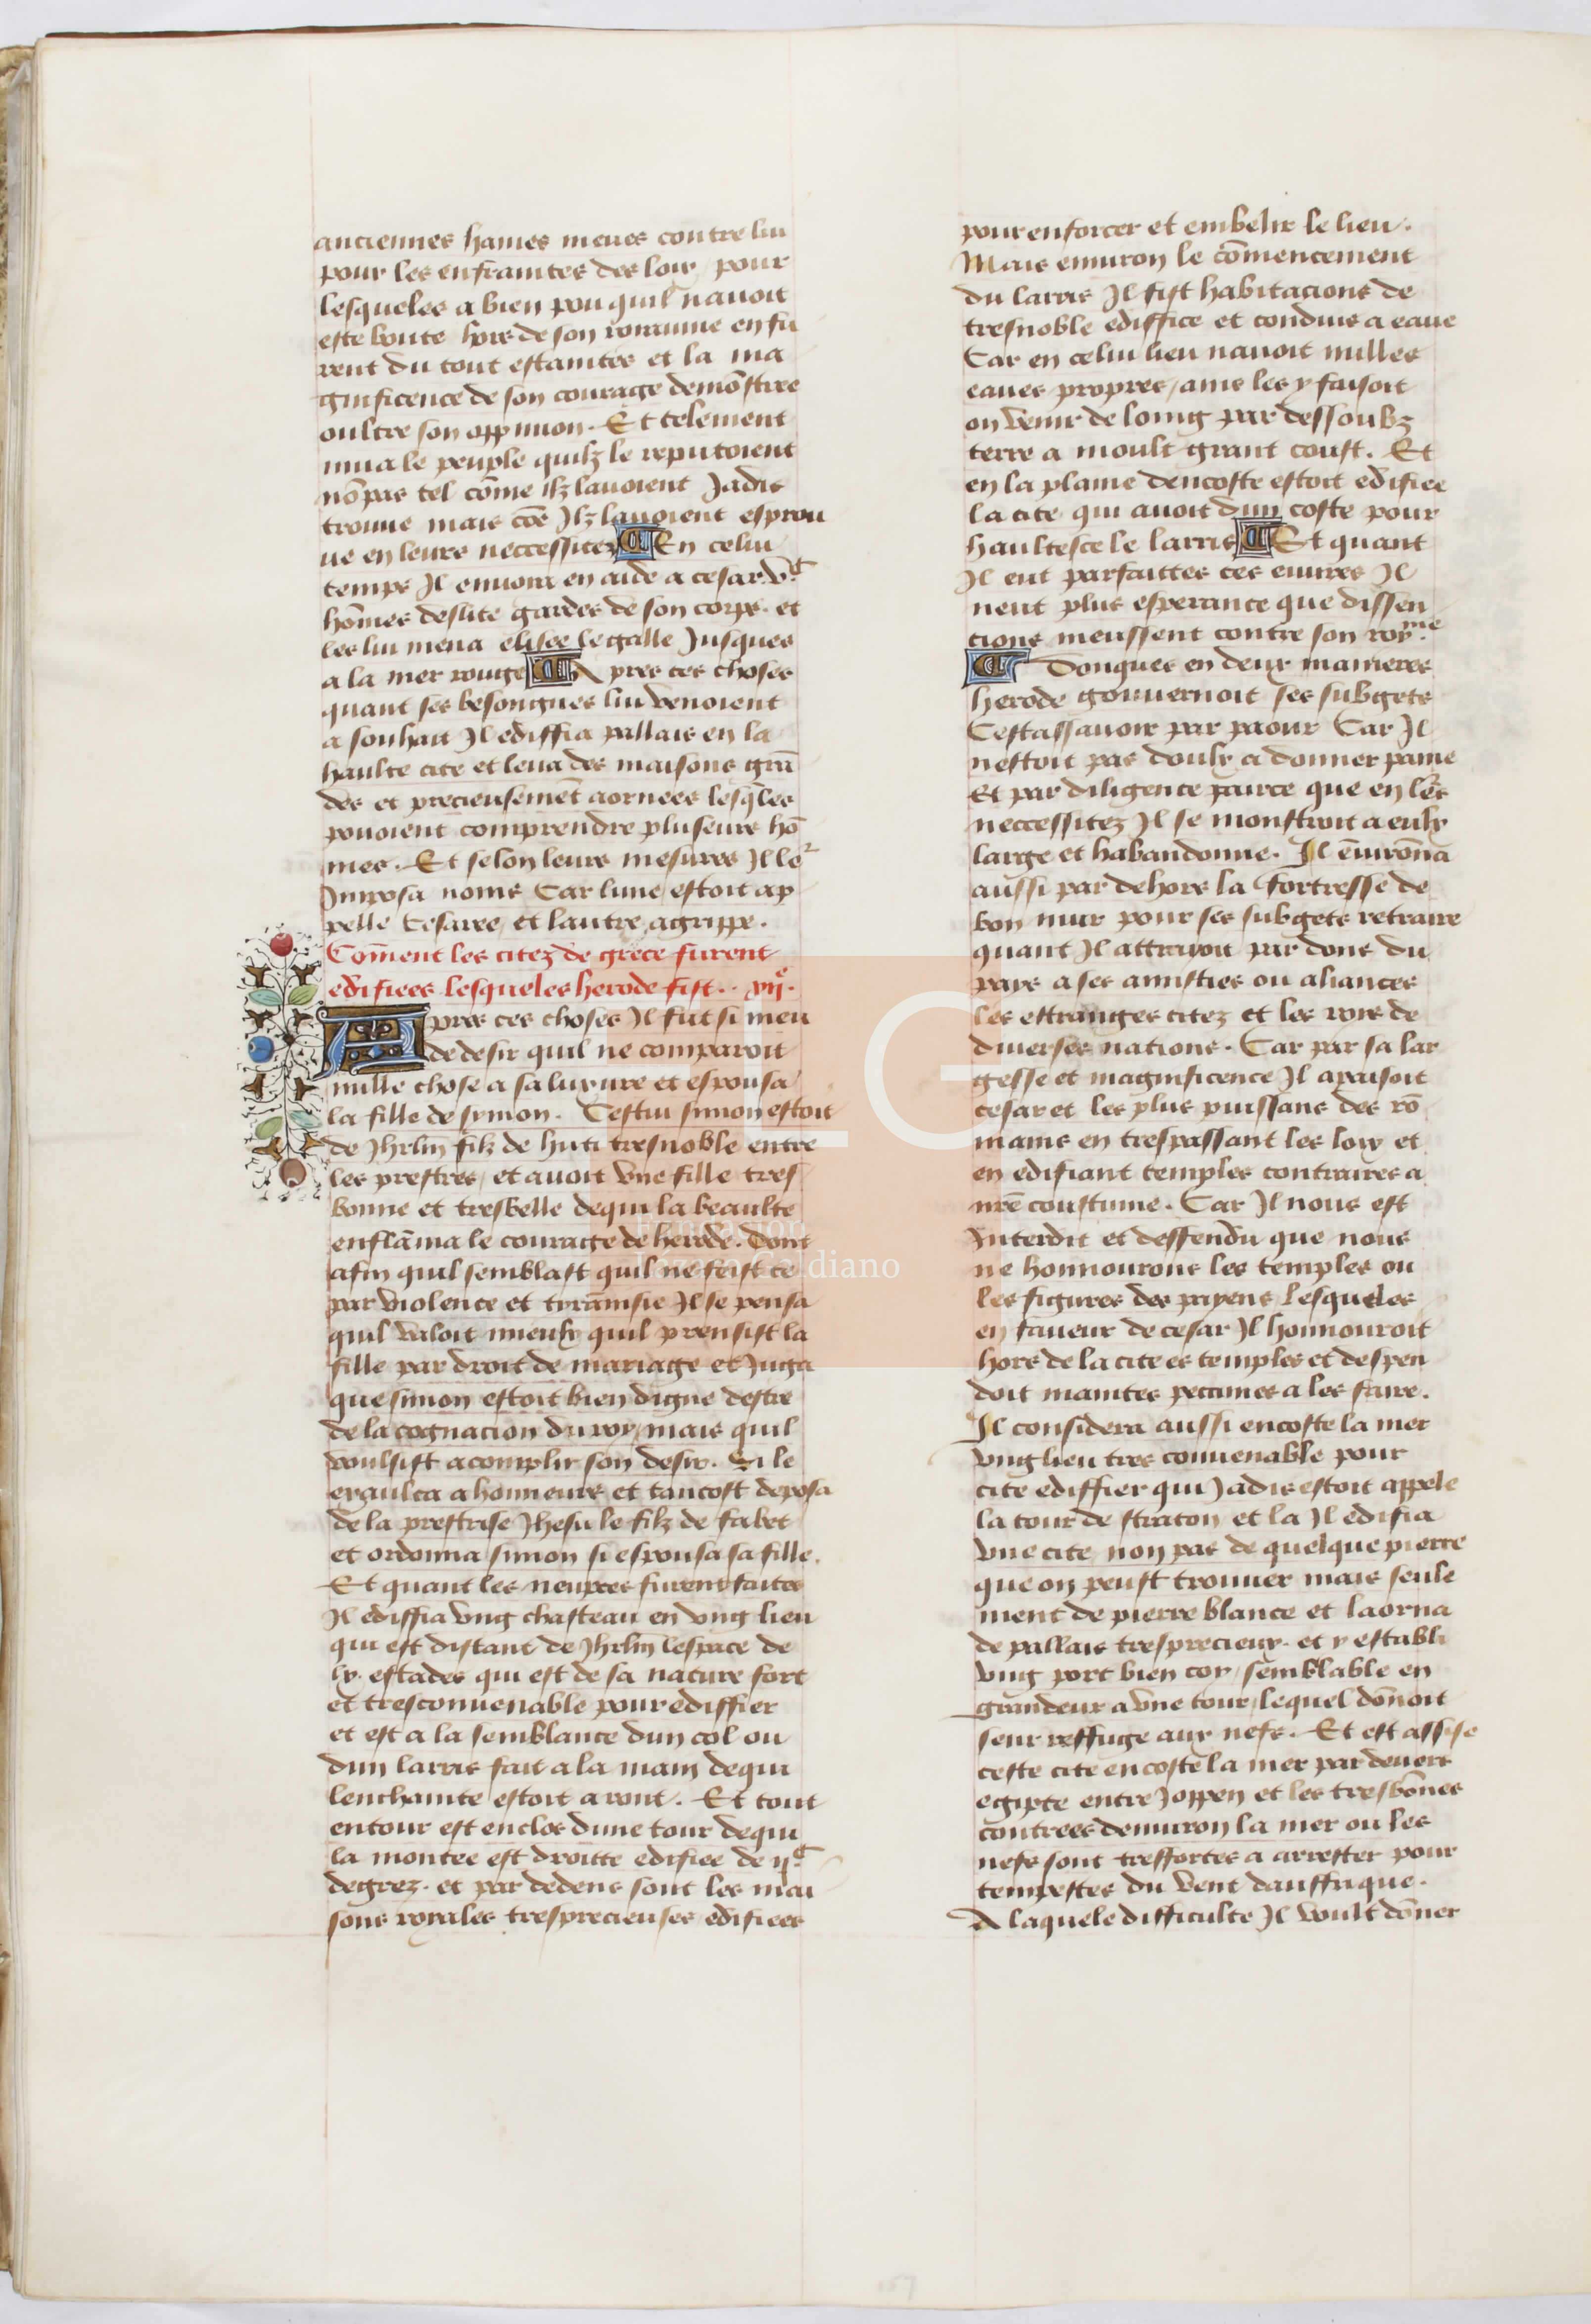 anciennes haines meues contre lui
pour les enfraintes des loix pour
lesqueles a bien pou quil nauoit
este boute hors de son roiaume en fu
rent du tout estaintes et la ma
gnificence de son courage demōstree
oultre son oppinion. Et telement
mua le peuple quilz le reputoient
nō pas tel cōme ilz lauoient Jadis
trouue mais cōe Ilz lauoient esprou
ue en leurs neccessitez En celui
temps Il enuoia en aide a cesar. v.ᶜ
hōmes deslite gardes de son corps. et
les lui mena elisee legalle Jusques
a la mer rouge Apres ces choses
quant ses besongnes lui venoient
a souhait Il ediffia pallais en la
haulte cite et leua des maisons grā
des et precieusemēt aornees lesq̄les
pouoient comprendre pluseurs hō
mes. Et selon leurs mesures Il leʳ
Imposa noms Car lune estoit ap
pelle Cesaree et lautre agrippe.
Cōment les citez de grece furent
edifiees lesqueles herode fist.. vijᵉ.
Apres ces choses Il fut si meu
de desir quil ne comparoit
nulle chose a sa luxure et espousa
la fille de symon. Cestui simon estoit
de Jhrlm̄ filz de huti tresnoble entre
les prestres, et auoit vne fille tres
bonne et tresbelle dequi la beaulte
enflāma le courage de herode. Dont
afin quil semblast quil ne feist ce
par violence et tyrānisie Il se pensa
quil valoit mieulx quil prensist la
fille par droit de mariage et Juga
que simon estoit bien digne destre
de la cognacion du roy, mais quil
voulsist acomplir son desir. Si le
exaulca a honneurs et tantost deposa
de la prestrise Jhesu le filz de fabet
et ordonna simon si espousa sa fille.
Et quant les neupces furent faites
Il ediffia vng chasteau en vng lieu
qui est distant de Jhrlm̄ lespace de
lx. estades qui est de sa nature fort
et tresconuenable pour ediffier
et est a la semblance dun col ou
dun larris fait a la main dequi
lenchainte estoit a ront. Et tout
entour est enclos dune tour dequi
la montee est droitte edifiee de ij.ᶜ
degrez. et par dedens sont les mai
sons royales tresprecieuses edifiees
pour enforcer et embelir le lieu.
Mais enuiron le cōmencement
du larris Il fist habitacions de
tresnoble ediffice et conduis a eaue
Car en celui lieu nauoit nulles
eaues propres, ains les y faisoit
on venir de loing par dessoubz
terre a moult grant coust. Et
en la plaine dencoste estoit edifiee
la cite qui auoit dun coste pour
haultesce le larris Et quant
Il eut parfaittes ces euures Il
neut plus esperance que dissen
cions meussent contre son roy.ᵐᵉ
Donques en deux manieres
herode gouuernoit ses subgets
Cestassauoir par paour Car Il
nestoit pas doulx a donner paine
Et par diligence parce que en leʳs
neccessitez Il se monstroit a eulx
large et habandonne. Il ēuirōna
aussi par dehors la fortresse de
bon mur pour ses subgets retraire
quant Il attraioit par dons du
pays a ses amisties ou aliances
les estranges citez et les rois de
diuerses nations. Car par sa lar
gesse et magnificence Il apaisoit
cesar et les plus puissans des rō
mains en trespassant les loix et
en edifiant temples contraires a
nr̄e coustume. Car Il nous est
Interdit et deffendu que nous
ne honnourons les temples ou
les figures des payens lesqueles
en faueur de cesar Il honnouroit
hors de la cite es temples et despen
doit maintes peccunes a les faire.
Il considera aussi encoste la mer
vng lieu tres conuenable pour
cite ediffier qui Jadis estoit appele
la tour de straton et la Il edifia
vne cite non pas de quelque pierre
que on peust trouuer mais seule
ment de pierre blance et laorna
de pallais tresprecieux. et y establi
vng port bien coy, semblable en
grandeur a vne tour, lequel dōnoit
seur reffuge aux nefs. Et est assise
ceste cite encoste la mer par deuers
egipte entre Joppen et les tresbōnes
contrees denuiron la mer ou les
nefs sont treffortes a arrester pour
tempestes du vent dauffrique.
A laquele difficulte Il voult dōner